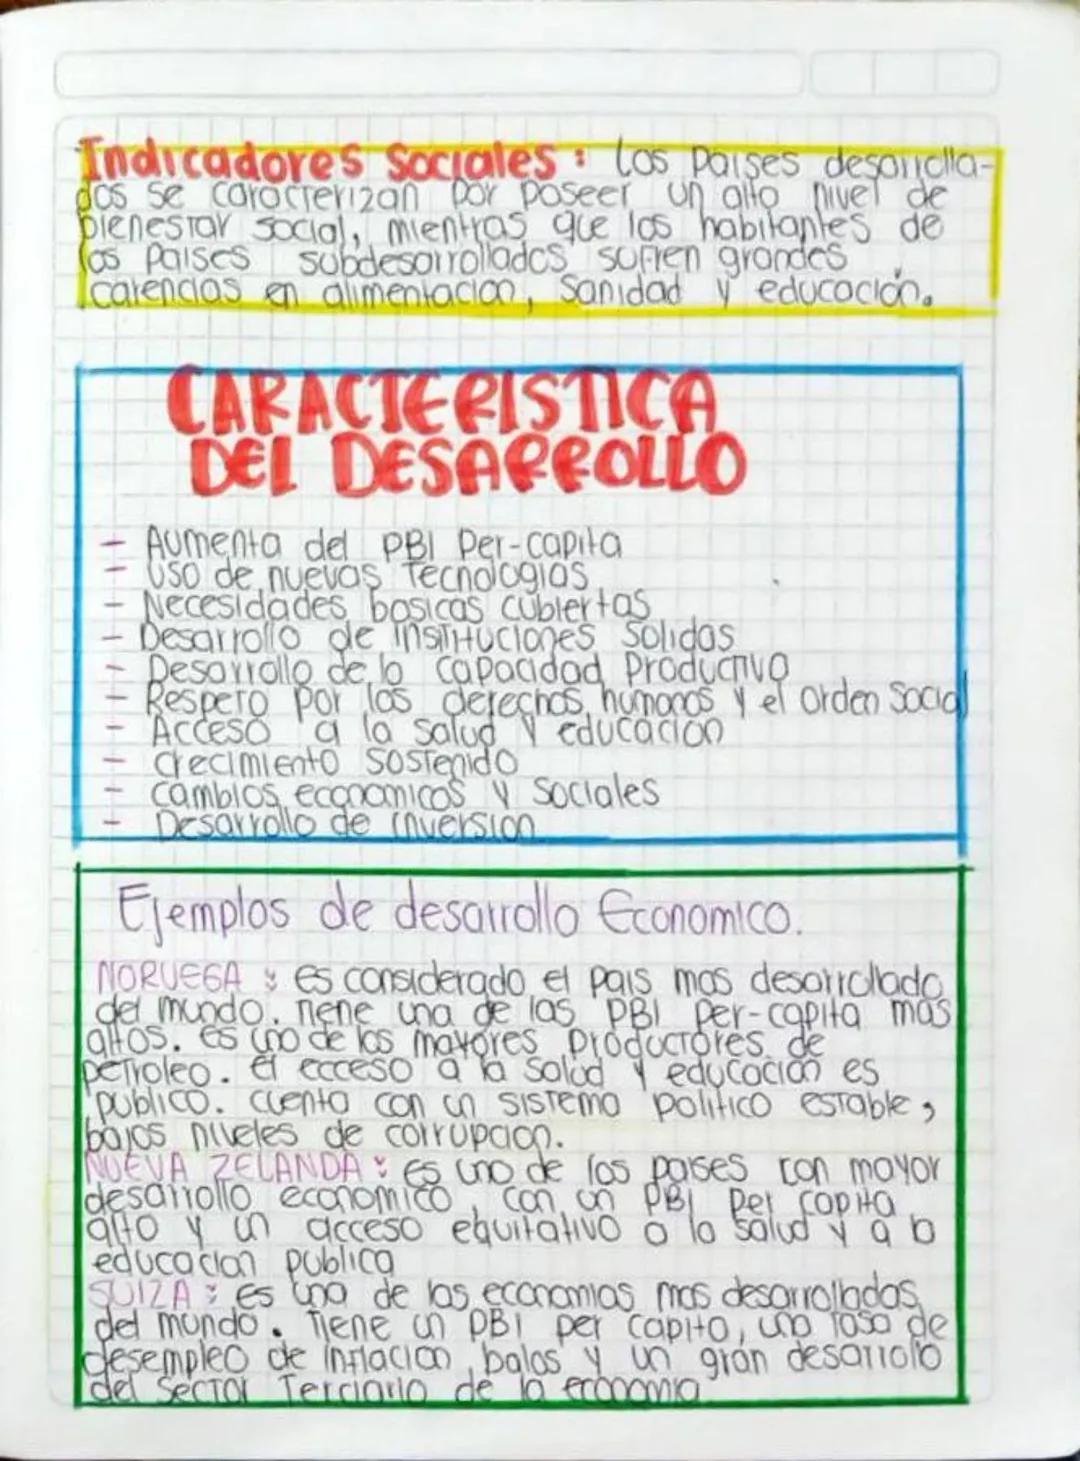 Indicadores Sociales: Los paises desarrolla-
dos se caracterizan por poseer un alto nivel de
bienestar social, mientras que los habitantes de
los paises subdesarrollados sufren grandes
carencias en alimentacion, Sanidad y educación.
CARACTERISTICA
DEL DESARROLLO
- Aumenta del PBI Per-capita
- Uso de nuevas Tecnologias
- Necesidades basicas cubiertas
- Desarrollo de instituciones Solidas
- Desarrollo de la capacidad Productiva
- Respeto por los derechos humanos y el orden Social
- Acceso a la salud y educacion
- crecimiento sostenido
- cambios economicos y Sociales
- Desarrollo de inversion
Ejemplos de desarrollo Economico.
NORUEGA: es considerado el pais mas desarrollado
del mundo. Tiene una de las PBI per-capita mas
altos. es uno de los mayores productores de
petroleo. el ecceso a la salud y educación es
publico. cuenta con un sistema politico estable,
bajos niveles de corrupcion.
NUEVA ZELANDA: es uno de los paises con mayor
desarrollo economico, con un PBI Per capita
alto y un acceso equitativo a la salud y a la
educacion publica
SUIZA: es una de las economias mas desarrolladas
del mundo. Tiene un PBI per capita, una tasa de
desempleo de inflacion, balos y un gran desarrollo
del sector Terciario de la economia